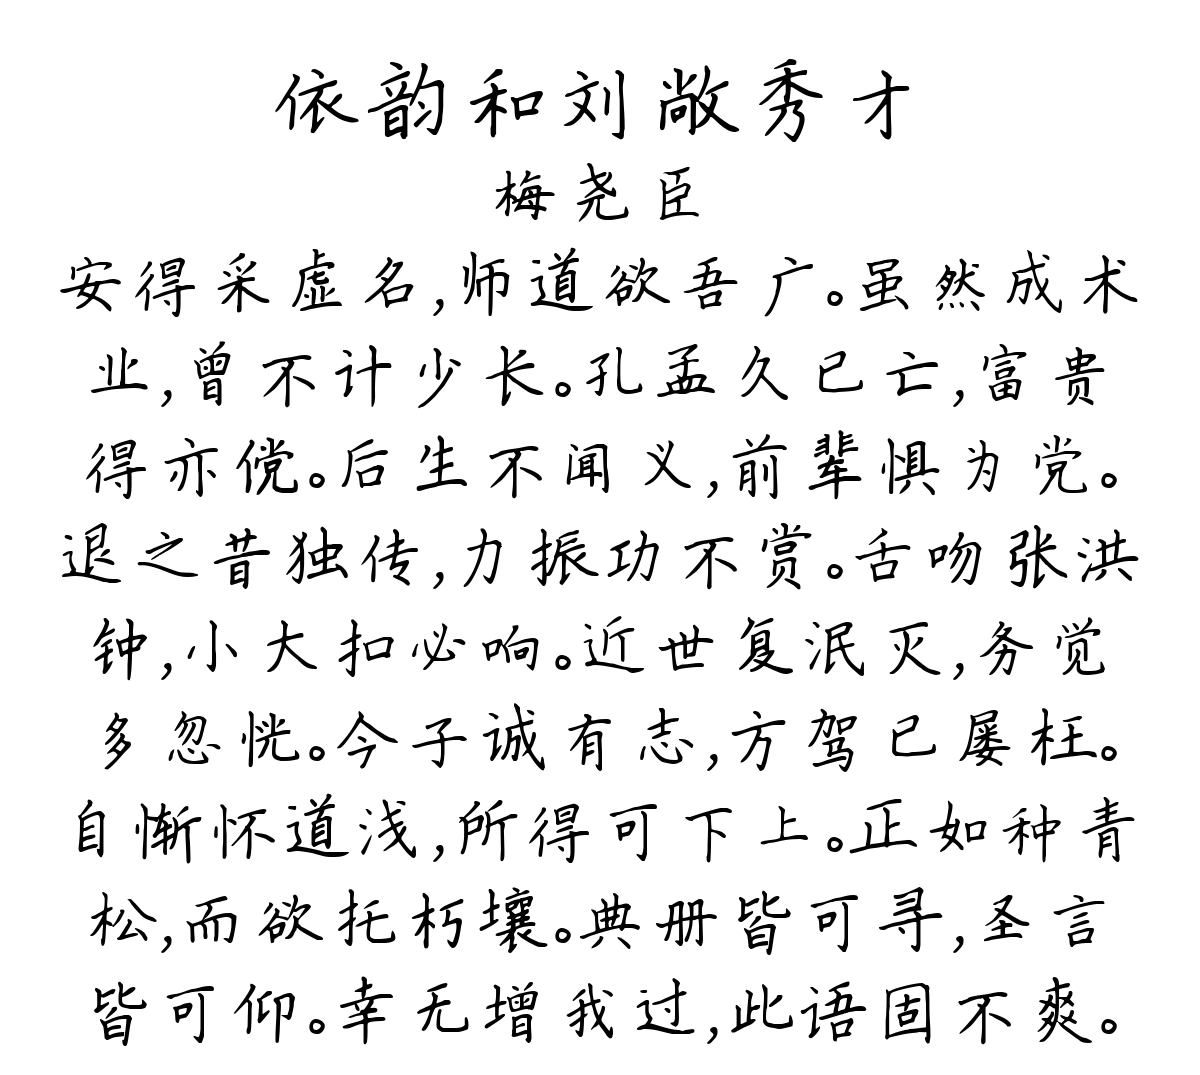 依韵和刘敞秀才
梅尧臣
安得采虚名,师道欲吾广。虽然成术
业,曾不计少长。孔孟久已亡,富贵
得亦傥。后生不闻义,前辈惧为党。
退之昔独传,力振功不赏。舌吻张洪
钟,小大扣必响。近世复泯灭,务觉
多忽恍。今子诚有志,方驾已屡枉。
自惭怀道浅,所得可下上。正如种青
松,而欲托朽壤。典册皆可寻,圣言
皆可仰。幸无增我过,此语固不爽。